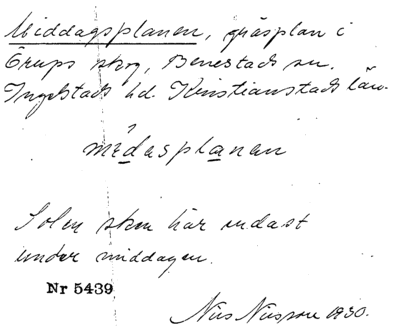 Middagsplanen, gräsplan i
Örups skog, Benestads sn.
Ingelstads hd. Kristianstads län.
mèdasplanan
Solen sken här endast
under middagen.
Nr 5439
Nils Nilsson 1930.